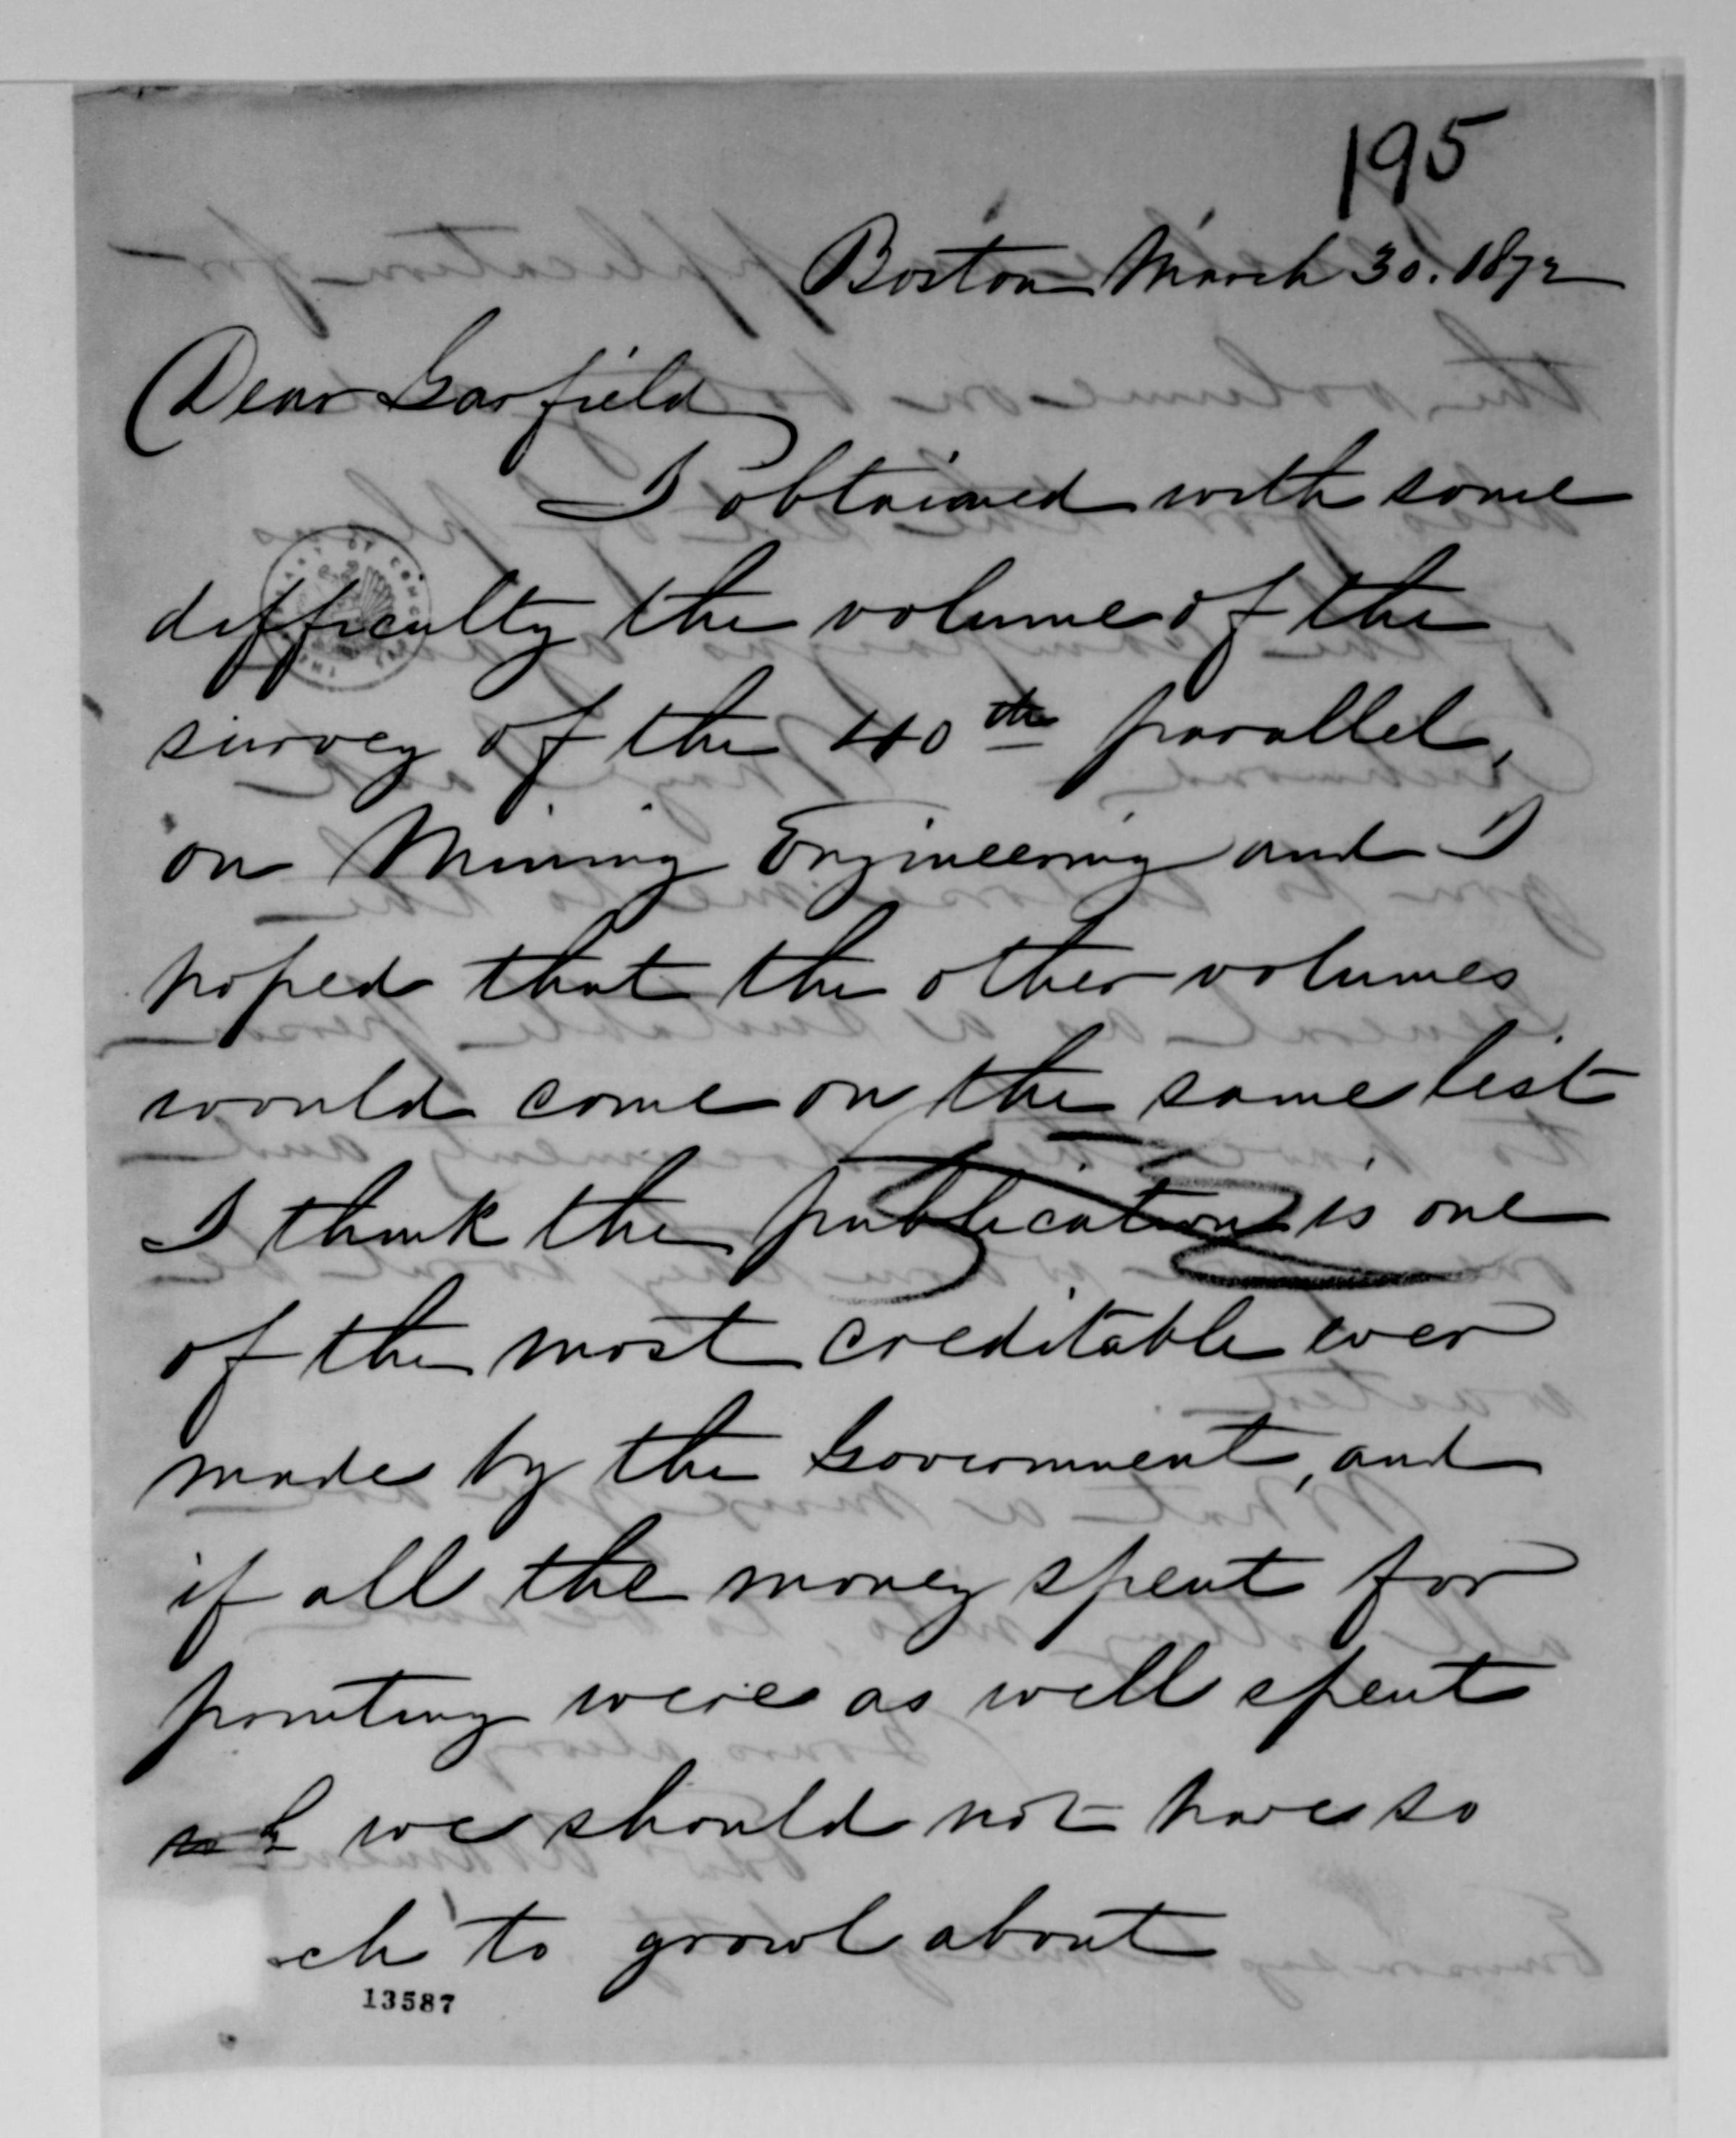 195
Boston March 30. 1872
Dear Garfield
I obtained with some
difficulty the volume of the
survey of the 40th parallel,
on Mining Engineering and I
hoped that the other volumes
would come on the same list
I think the publication is one
of the most creditable ever
made by the Government, and
if all the money spent for
printing were as well spent
we should not have so
ch to growl about
13587